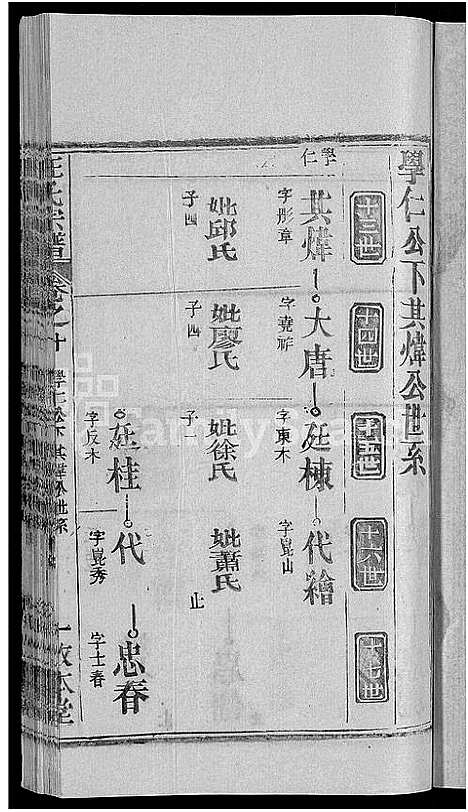 學仁公下其煒公世系
十三世
十四世
十五世
十六世
十七世
學仁
其煒
大唐
廷棟
代繪
字彤章
字堯祚
字東木
字崑山
妣邱氏
妣廖氏
妣徐氏
妣蕭氏
子四
子四
子一
止
廷桂
代
忠春
字崑秀
字士春
氏宗譜
卷之十
學仁公下其煒公世系
一
敦本堂